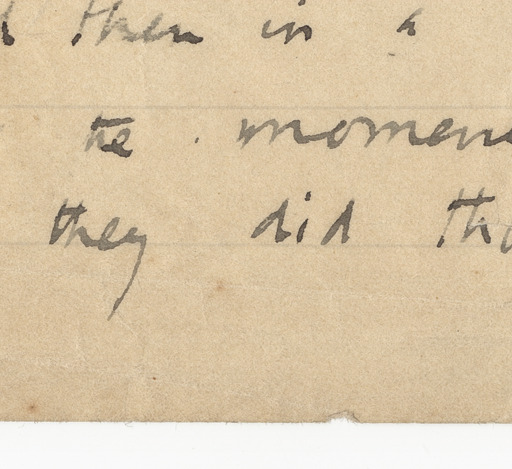 then in a
the momen
they did th